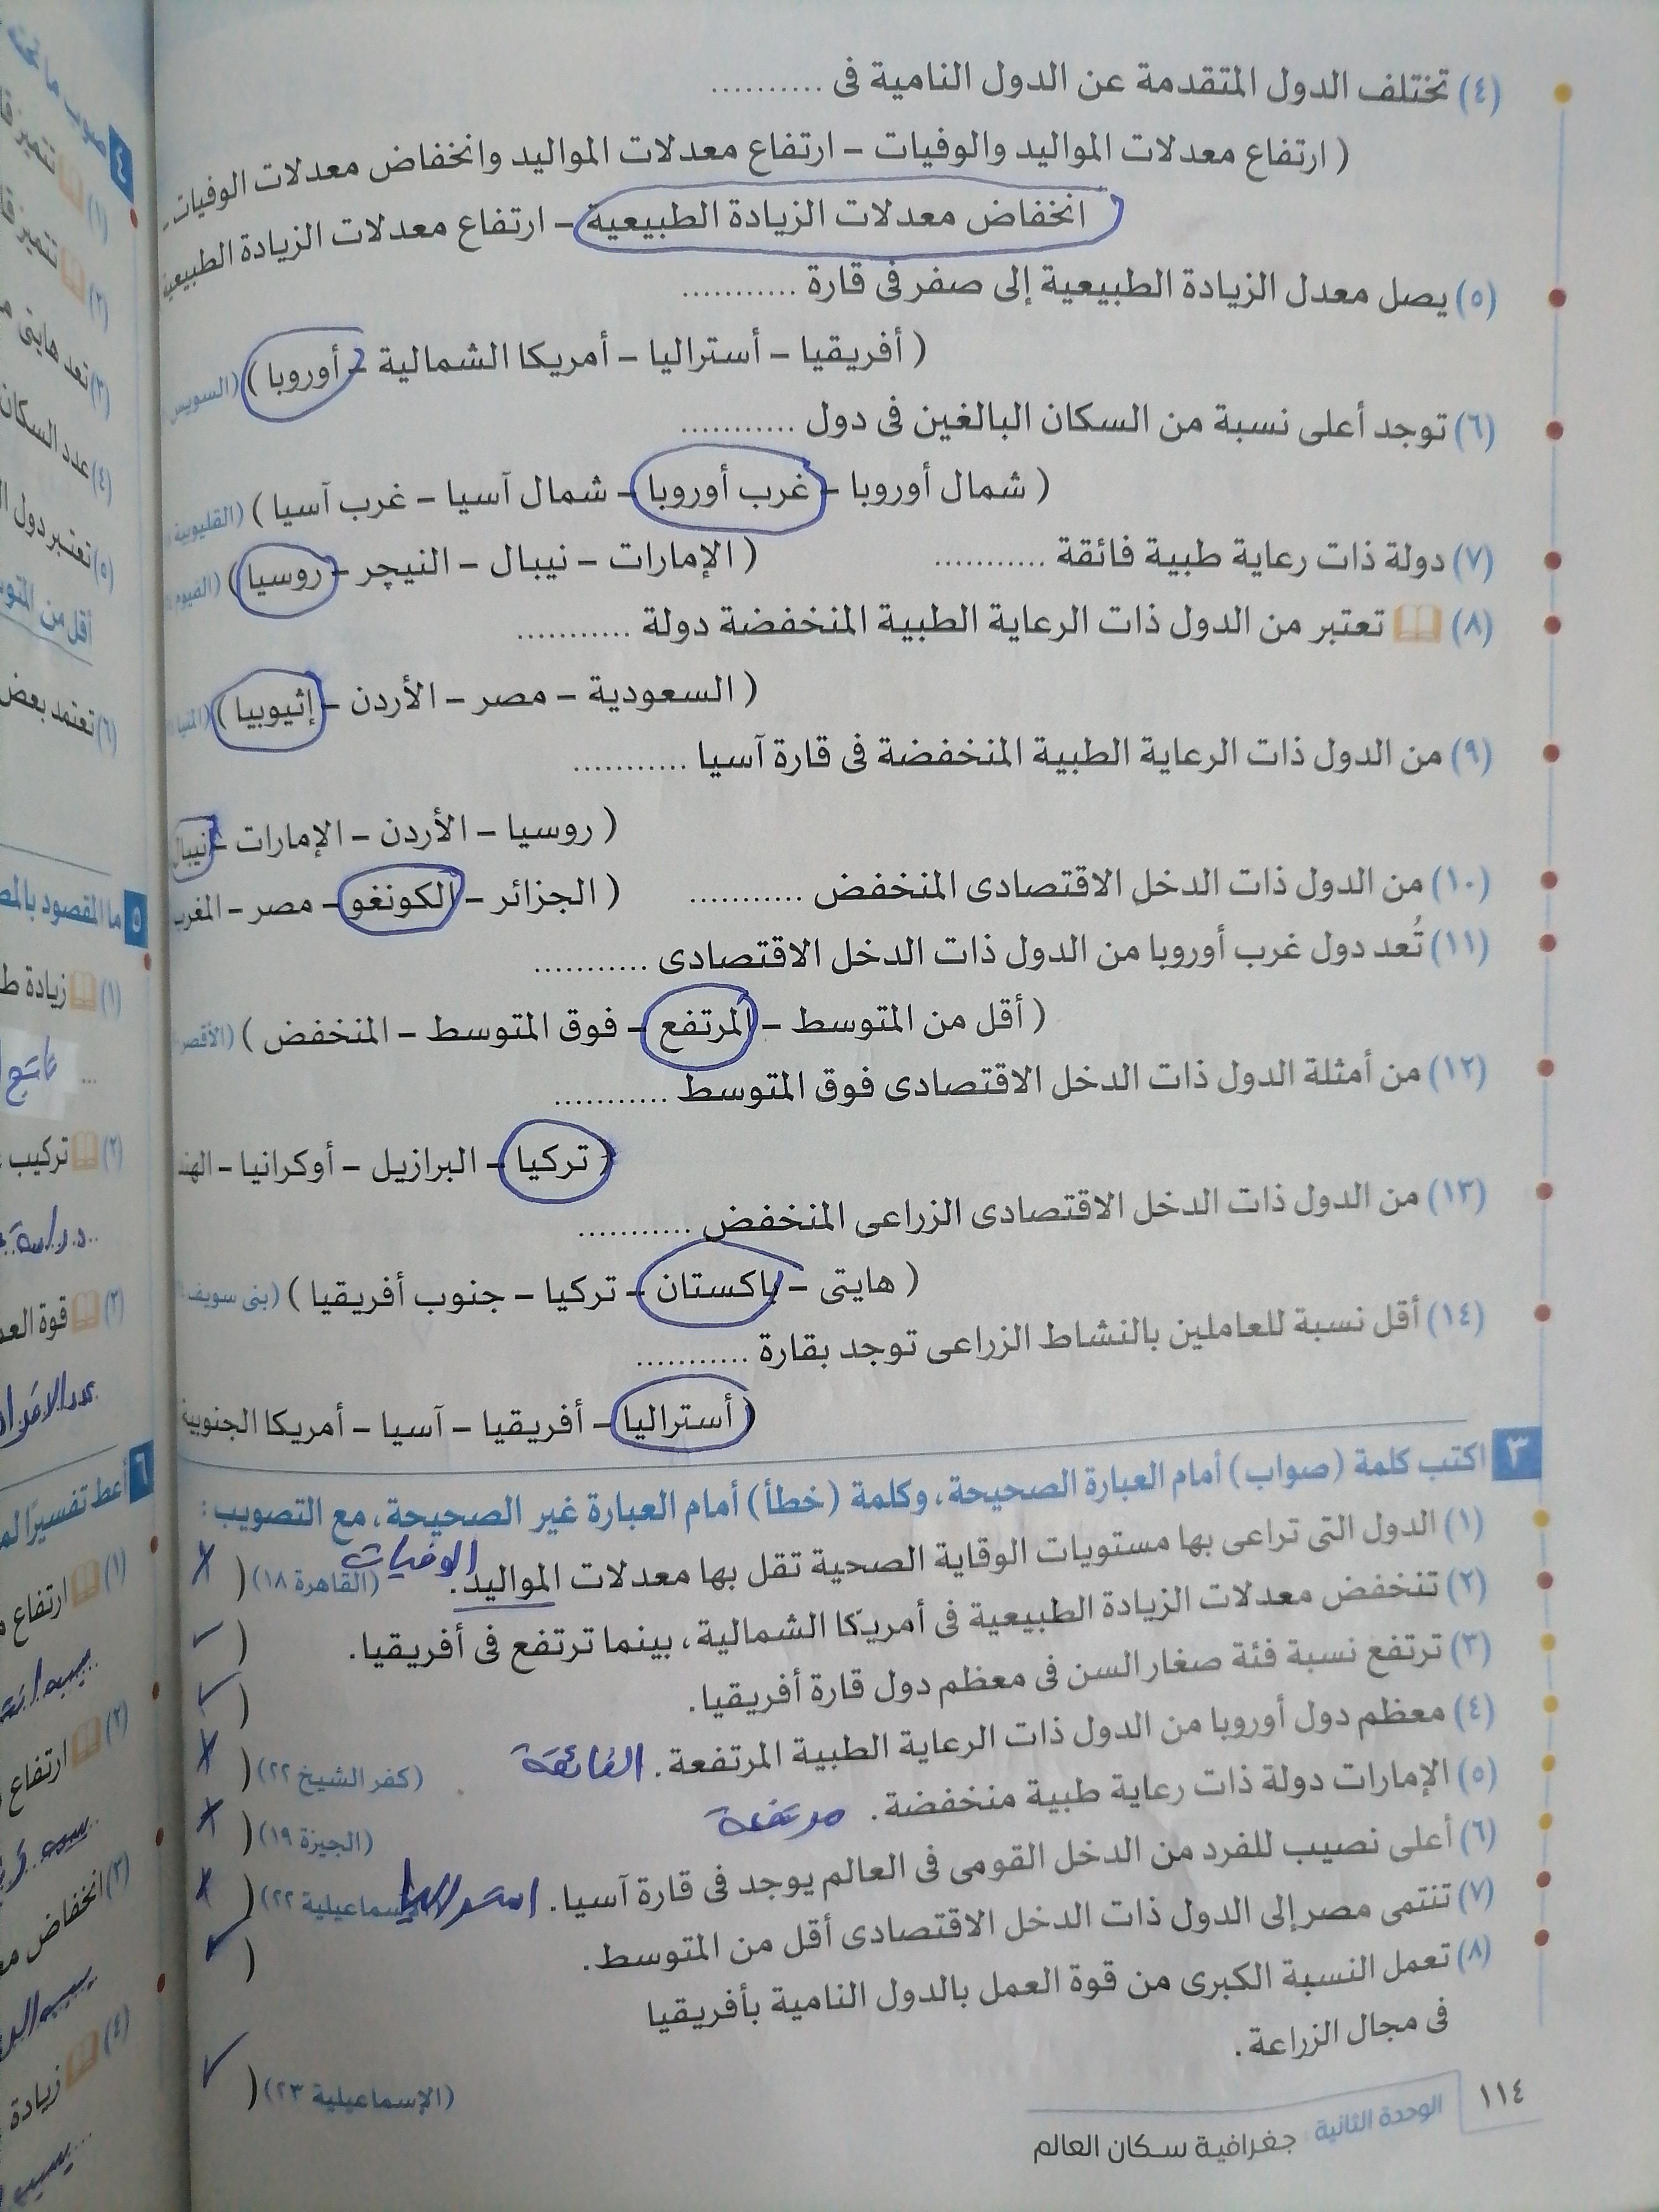 (٤) تختلف الدول المتقدمة عن الدول النامية فى ..........
( ارتفاع معدلات المواليد والوفيات – ارتفاع معدلات المواليد وانخفاض معدلات الوفيات –
انخفاض معدلات الزيادة الطبيعية – ارتفاع معدلات الزيادة الطبيعية
(٥) يصل معدل الزيادة الطبيعية إلى صفر فى قارة ...........
( أفريقيا – أستراليا – أمريكا الشمالية – أوروبا ) (السويس
(٦) توجد أعلى نسبة من السكان البالغين فى دول ...........
( شمال أوروبا – غرب أوروبا – شمال آسيا – غرب آسيا ) (القليوبية
(٧) دولة ذات رعاية طبية فائقة ........... ( الإمارات – نيبال – النيچر – روسيا ) (الفيوم
(٨) تعتبر من الدول ذات الرعاية الطبية المنخفضة دولة ...........
( السعودية – مصر – الأردن – إثيوبيا ) (المنيا
(٩) من الدول ذات الرعاية الطبية المنخفضة فى قارة آسيا ...........
( روسيا – الأردن – الإمارات – نيبال
(١٠) من الدول ذات الدخل الاقتصادى المنخفض ........... ( الجزائر – الكونغو – مصر – المغرب
(١١) تُعد دول غرب أوروبا من الدول ذات الدخل الاقتصادى ...........
( أقل من المتوسط – المرتفع – فوق المتوسط – المنخفض ) (الأقصر
(١٢) من أمثلة الدول ذات الدخل الاقتصادى فوق المتوسط ...........
( تركيا – البرازيل – أوكرانيا – الهند
(١٣) من الدول ذات الدخل الاقتصادى الزراعى المنخفض ...........
( هايتى – باكستان – تركيا – جنوب أفريقيا ) (بنى سويف
(١٤) أقل نسبة للعاملين بالنشاط الزراعى توجد بقارة ...........
( أستراليا – أفريقيا – آسيا – أمريكا الجنوبية
٣ اكتب كلمة (صواب) أمام العبارة الصحيحة، وكلمة (خطأ) أمام العبارة غير الصحيحة، مع التصويب :
(١) الدول التى تراعى بها مستويات الوقاية الصحية تقل بها معدلات المواليد. الوفيات (القاهرة ١٨) ( X
(٢) تنخفض معدلات الزيادة الطبيعية فى أمريكا الشمالية، بينما ترتفع فى أفريقيا. ( ✓
(٣) ترتفع نسبة فئة صغار السن فى معظم دول قارة أفريقيا. ( ✓
(٤) معظم دول أوروبا من الدول ذات الرعاية الطبية المرتفعة. الفائقة (كفر الشيخ ٢٢) ( X
(٥) الإمارات دولة ذات رعاية طبية منخفضة. مرتفعة (الجيزة ١٩) ( X
(٦) أعلى نصيب للفرد من الدخل القومى فى العالم يوجد فى قارة آسيا. استراليا (الإسماعيلية ٢٢) ( X
(٧) تنتمى مصر إلى الدول ذات الدخل الاقتصادى أقل من المتوسط. ( ✓
(٨) تعمل النسبة الكبرى من قوة العمل بالدول النامية بأفريقيا
فى مجال الزراعة. (الإسماعيلية ٢٣) ( ✓
١١٤ الوحدة الثانية : جغرافية سكان العالم
٤ صوب ما تحته
(١) تتميز
(٢) تتميز
(٣) تعد هايتى
(٤) عدد السكان
(٥) تعتبر دول
أقل من
(٦) تعتمد بعض
٥ ما المقصود
(١) زيادة
(٢) تركيب
دراسة
(٣) قوة
٦ أعط تفسيرًا
(١) ارتفاع
(٢) ارتفاع
(٣) انخفاض
(٤) زيادة